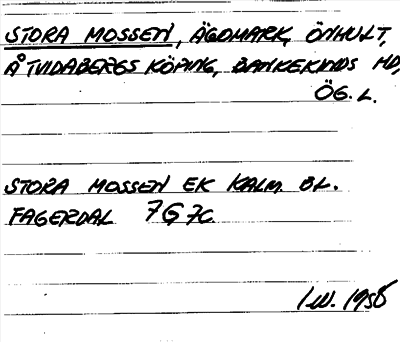 STORA MOSSEN, ÄGOMARK, ÖNHULT,
ÅTVIDABERGS KÖPING, BANKEKINDS HD,
ÖG. L.
STORA MOSSEN EK KALM. BL.
FAGERDAL 7G 7c
I.W. 1958